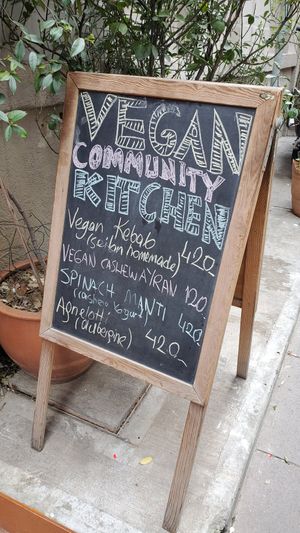 VEGAN
COMMUNITY
KITCHEN
Vegan Kebab 420
(seitan homemade)
VEGAN CASHEW AYRAN 120
SPINACH MANTI 420
(cashew yogurt)
Agnelotti 420
(auberpine)